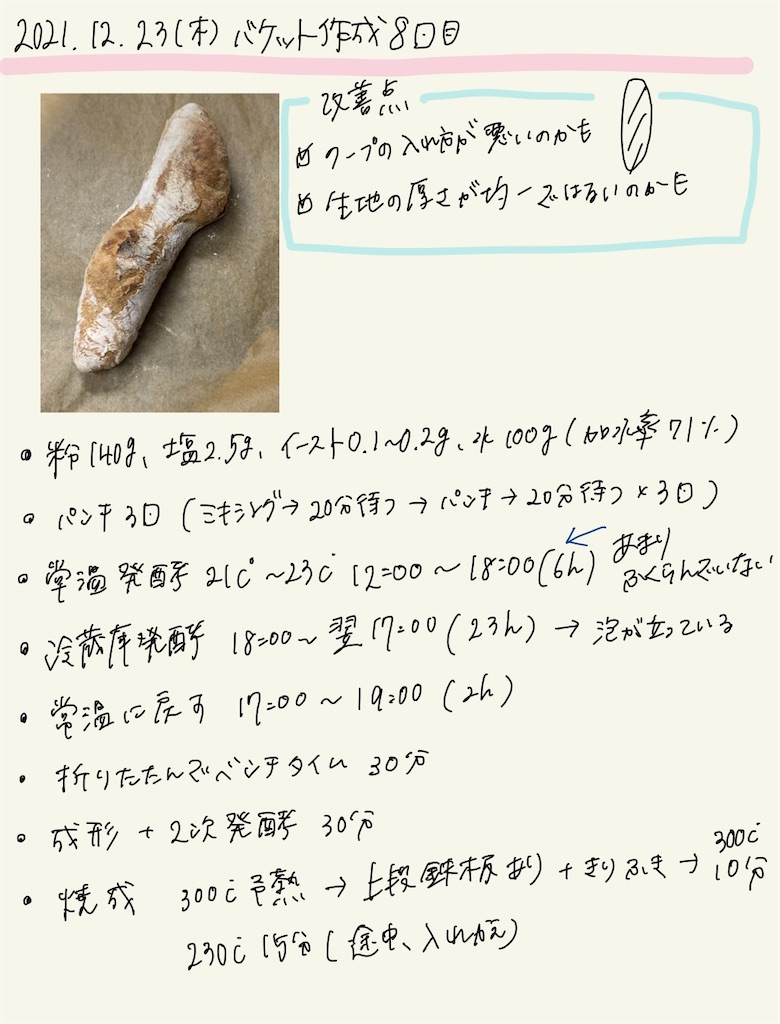 2021.12.23(木) バケット作成8回目
改善点
クープの入れ方が悪いのかも
生地の厚さが均一ではないのかも
• 粉140g、塩2.5g、イースト0.1~0.2g、水100g(加水率71%)
• パンチ3回(ミキシング→20分待つ→パンチ→20分待つ×3回)
• 常温発酵 21℃~23℃ 12:00~18:00(6h) ← あまり
ふくらんでいない
• 冷蔵庫発酵 18:00~翌17:00(23h)→泡が立っている
• 常温に戻す 17:00~19:00(2h)
• 折りたたんでベンチタイム 30分
• 成形+2次発酵 30分
• 焼成 300℃予熱→上段鉄板あり+きりふき→300℃ 10分
230℃ 15分(途中、入れかえ)